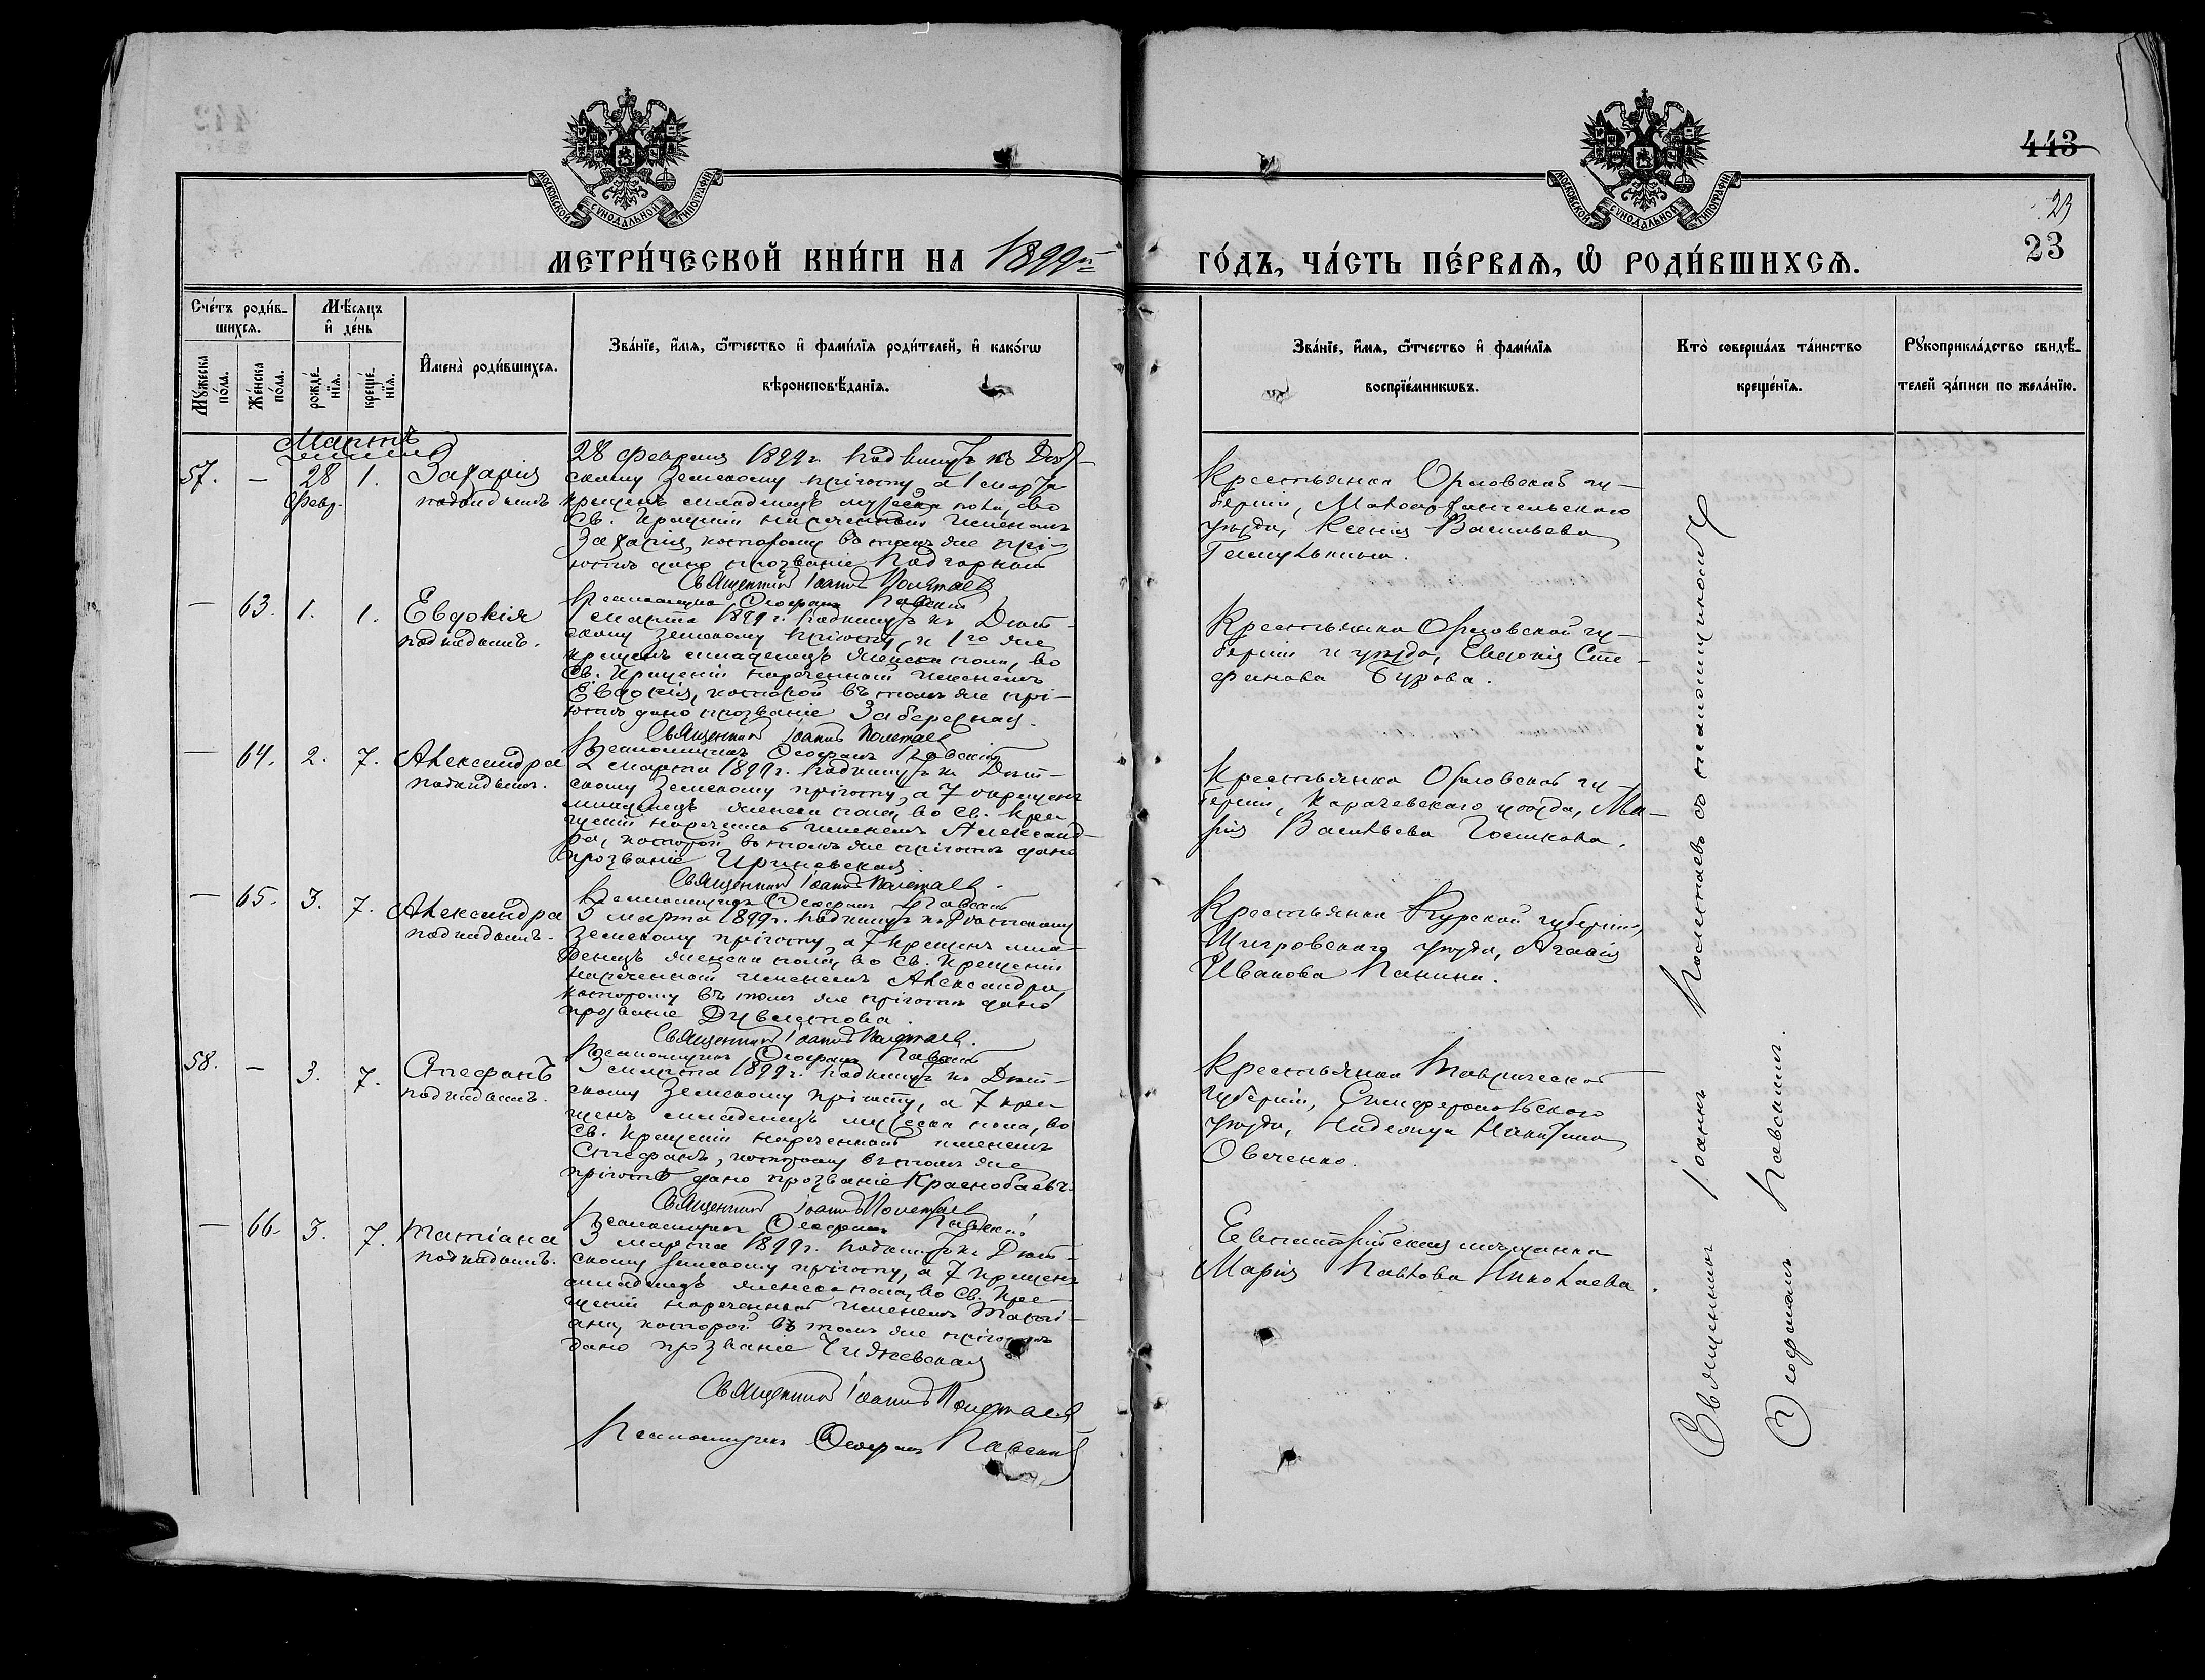 443
29
23
МОСКОВСКОЙ СѴНОДАЛЬНОЙ ТИПОГРАФІИ
МОСКОВСКОЙ СѴНОДАЛЬНОЙ ТИПОГРАФІИ
МЕТРИ́ЧЕСКОЙ КНИ́ГИ НА 1899й
ГО́ДЪ, ЧА́СТЬ ПЕ́РВАѦ, Ѽ РОДИ́ВШИХСѦ.
Сче́тъ роди́в-
шихсѧ.
Мѣ́сѧцъ
и҆ де́нь
Мꙋ́жеска
по́ла.
Же́нска
по́ла.
рожде́-
нїѧ.
креще́-
нїѧ.
И҆мена̀ роди́вшихсѧ.
Зва́нїе, и҆́мѧ, ѻ҆́тчество и҆ фами́лїѧ роди́телей, и҆ како́гѡ
вѣроисповѣ́данїѧ.
Зва́нїе, и҆́мѧ, ѻ҆́тчество и҆ фами́лїѧ
воспрїе́мникѡвъ.
Кто̀ соверша́лъ та́инство
креще́нїѧ.
Рꙋкоприкла́дство свидѣ́-
телей за́писи по жела́нїю.
Мартъ
57. — 28 Февр. 1. Захарія
подкидышъ
28 февраля 1899 г. подкинутъ къ Дѣт-
скому Земскому пріюту, а 1 марта
крещенъ младенецъ мужеска пола, во
Св. Крещеніи нареченный именемъ
Захарія, которому въ томъ же прі-
ютѣ дано прозваніе Подгорный
Священникъ Іоаннъ Полетаевъ
Псаломщикъ Ѳеофанъ Павскій
Крестьянка Орловской гу-
берніи, Малоархангельского
уѣзда, Ксенія Васильева
— 63. 1. 1. Евдокія
подкидышъ.
1 марта 1899 г. подкинутъ къ Дѣт-
скому Земскому пріюту, и 1го же
крещенъ младенецъ женска пола, во
Св. Крещеніи нареченный именемъ
Евдокія, которой въ томъ же прі-
ютѣ дано прозваніе Забережная.
Священникъ Іоаннъ Полетаевъ
Псаломщикъ Ѳеофанъ Павскій
Крестьянка Орловской гу-
берніи и уѣзда, Евдокія Сте-
фанова Бурова.
— 64. 2. 7. Александра
подкидышъ.
2 марта 1899 г. подкинутъ къ Дѣт-
скому Земскому пріюту, а 7 окрещенъ
младенецъ женска пола, во Св. Кре-
щеніи нареченный именемъ Александ-
ра, которой въ томъ же пріютѣ дано
прозваніе
Священникъ Іоаннъ Полетаевъ.
Псаломщикъ Ѳеофанъ Павскій
Крестьянка Орловской гу-
берніи, Карачевскаго уѣзда, Ма-
рія Васильева
— 65. 3. 7. Александра
подкидышъ.
3 марта 1899 г. подкинутъ къ Дѣтскому
Земскому пріюту, а 7 крещенъ мла-
денецъ женска пола, во Св. Крещеніи
нареченный именемъ Александра,
которому въ томъ же пріютѣ дано
прозваніе
Священникъ Іоаннъ Полетаевъ.
Псаломщикъ Ѳеофанъ Павскій
Крестьянка Курской губерніи,
Щигровскаго уѣзда, Агафія
Иванова Панина.
58. — 3. 7. Стефанъ
подкидышъ.
3 марта 1899 г. подкинутъ къ Дѣт-
скому Земскому пріюту, а 7 кре-
щенъ младенецъ мужеска пола, во
Св. Крещеніи нареченный именемъ
Стефанъ, которому въ томъ же
пріютѣ дано прозваніе Краснобаевъ.
Священникъ Іоаннъ Полетаевъ
Псаломщикъ Ѳеофанъ Павскій
Крестьянка Таврической
губерніи, Симферопольскаго
уѣзда, Надежда Никитина
Овченко.
— 66. 3. 7. Татіана
подкидышъ.
3 марта 1899 г. подкинутъ къ Дѣт-
скому Земскому пріюту, а 7 крещенъ
младенецъ женска пола, во Св. Кре-
щеніи нареченный именемъ Таті-
ана, которой въ томъ же пріютѣ
дано прозваніе Чижевская
Священникъ Іоаннъ Полетаевъ
Псаломщикъ Ѳеофанъ Павскій
Евпаторійская мѣщанка
Марія Павлова Николаева.
Священникъ Іоаннъ Полетаевъ съ псаломщикомъ
Ѳеофаномъ Павскимъ.